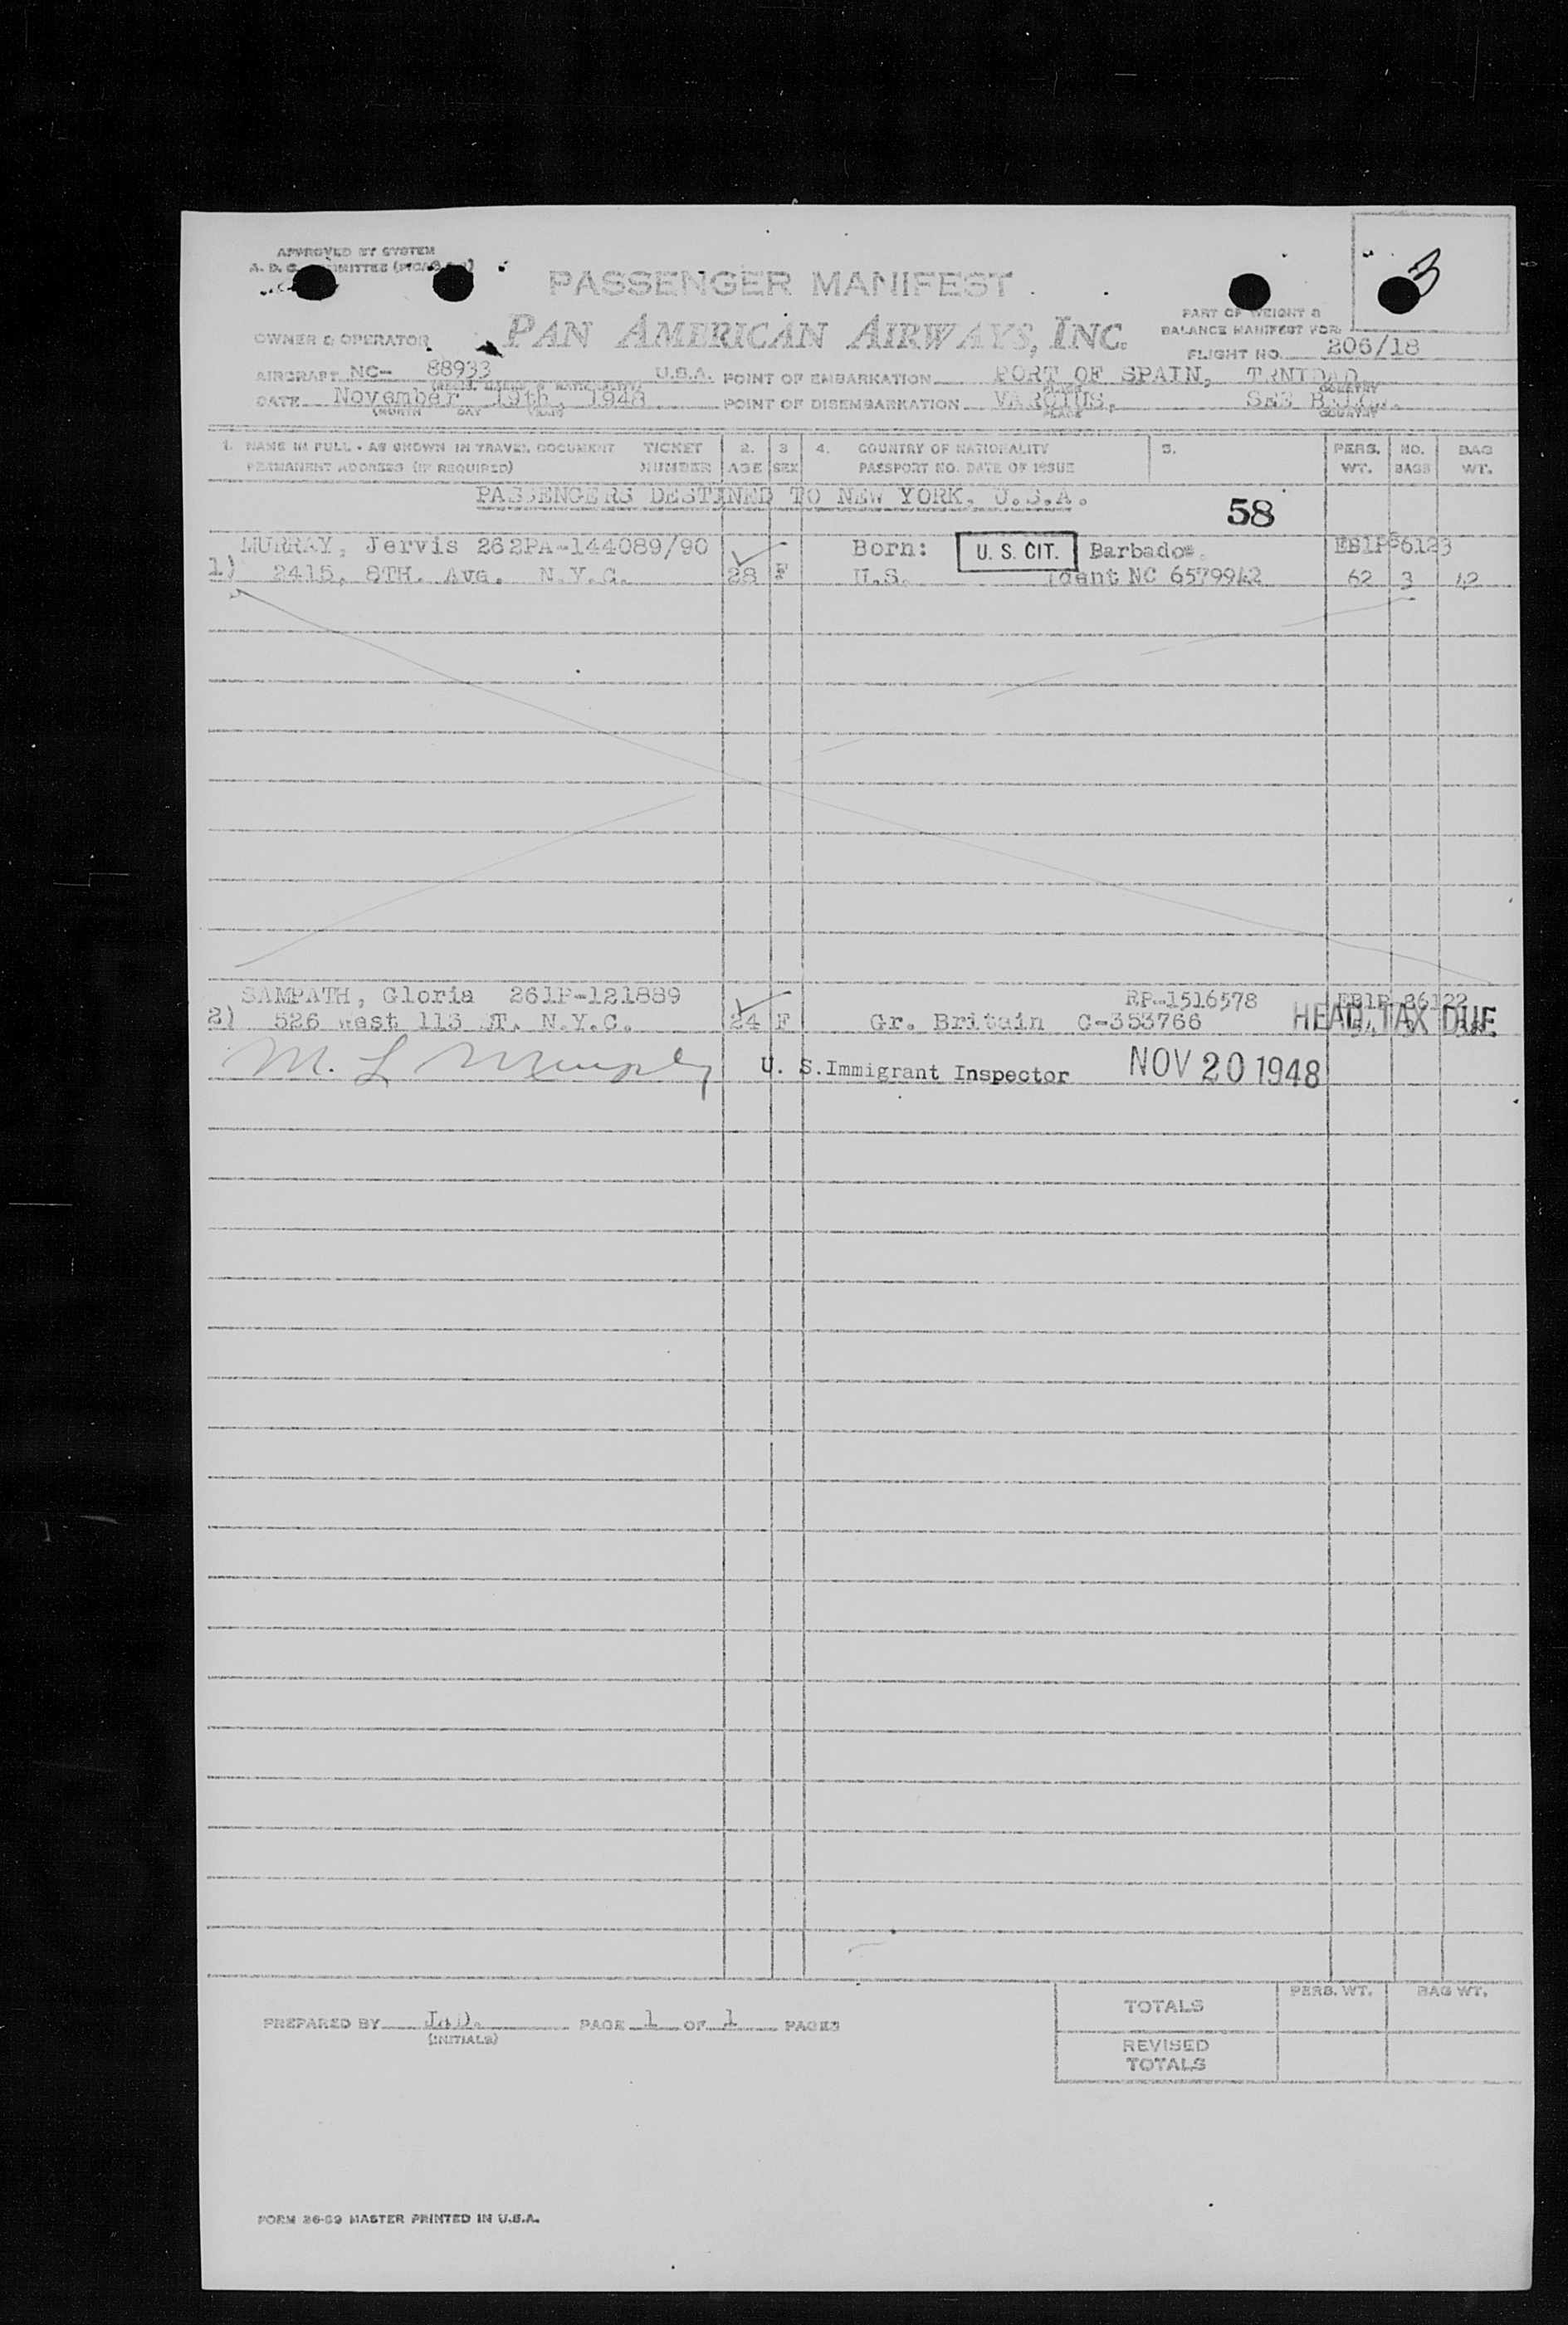 APPROVED BY SYSTEM
A. D. C. COMMITTEE
3
PASSENGER MANIFEST
PART OF WEIGHT &
BALANCE MANIFEST FOR:
OWNER & OPERATOR PAN AMERICAN AIRWAYS, INC.
FLIGHT NO. 206/18
AIRCRAFT NC- 88933 U.S.A. POINT OF EMBARKATION PORT OF SPAIN, TRNIDAD
PLACE COUNTRY
DATE November 19th, 1948 POINT OF DISEMBARKATION VAROIUS, SEE BELOW.
(MONTH DAY YEAR) PLACE COUNTRY
1. NAME IN FULL - AS SHOWN IN TRAVEL DOCUMENT TICKET 2. 3 4. COUNTRY OF NATIONALITY 5. PERS. NO. BAG
PERMANENT ADDRESS (IF REQUIRED) NUMBER AGE SEX PASSPORT NO. DATE OF ISSUE WT. BAGS WT.
PASSENGERS DESTINED TO NEW YORK, U.S.A.
58
MURRAY, Jervis 262PA-144089/90 Born: U. S. CIT. Barbados.
1) 2415, 8TH. Ave. N.Y.C. 28 F U.S. Ident NC 6579942 62 3 42
SAMPATH, Gloria 261P-121889 RP-1516578
2) 526 West 113 ST. N.Y.C. 24 F Gr. Britain C-353766 HEAD TAX DUE
U. S. Immigrant Inspector NOV 20 1948
TOTALS PERS. WT. BAG WT.
PREPARED BY PAGE 1 OF 1 PAGES
(INITIALS)
REVISED
TOTALS
FORM 26-59 MASTER PRINTED IN U.S.A.